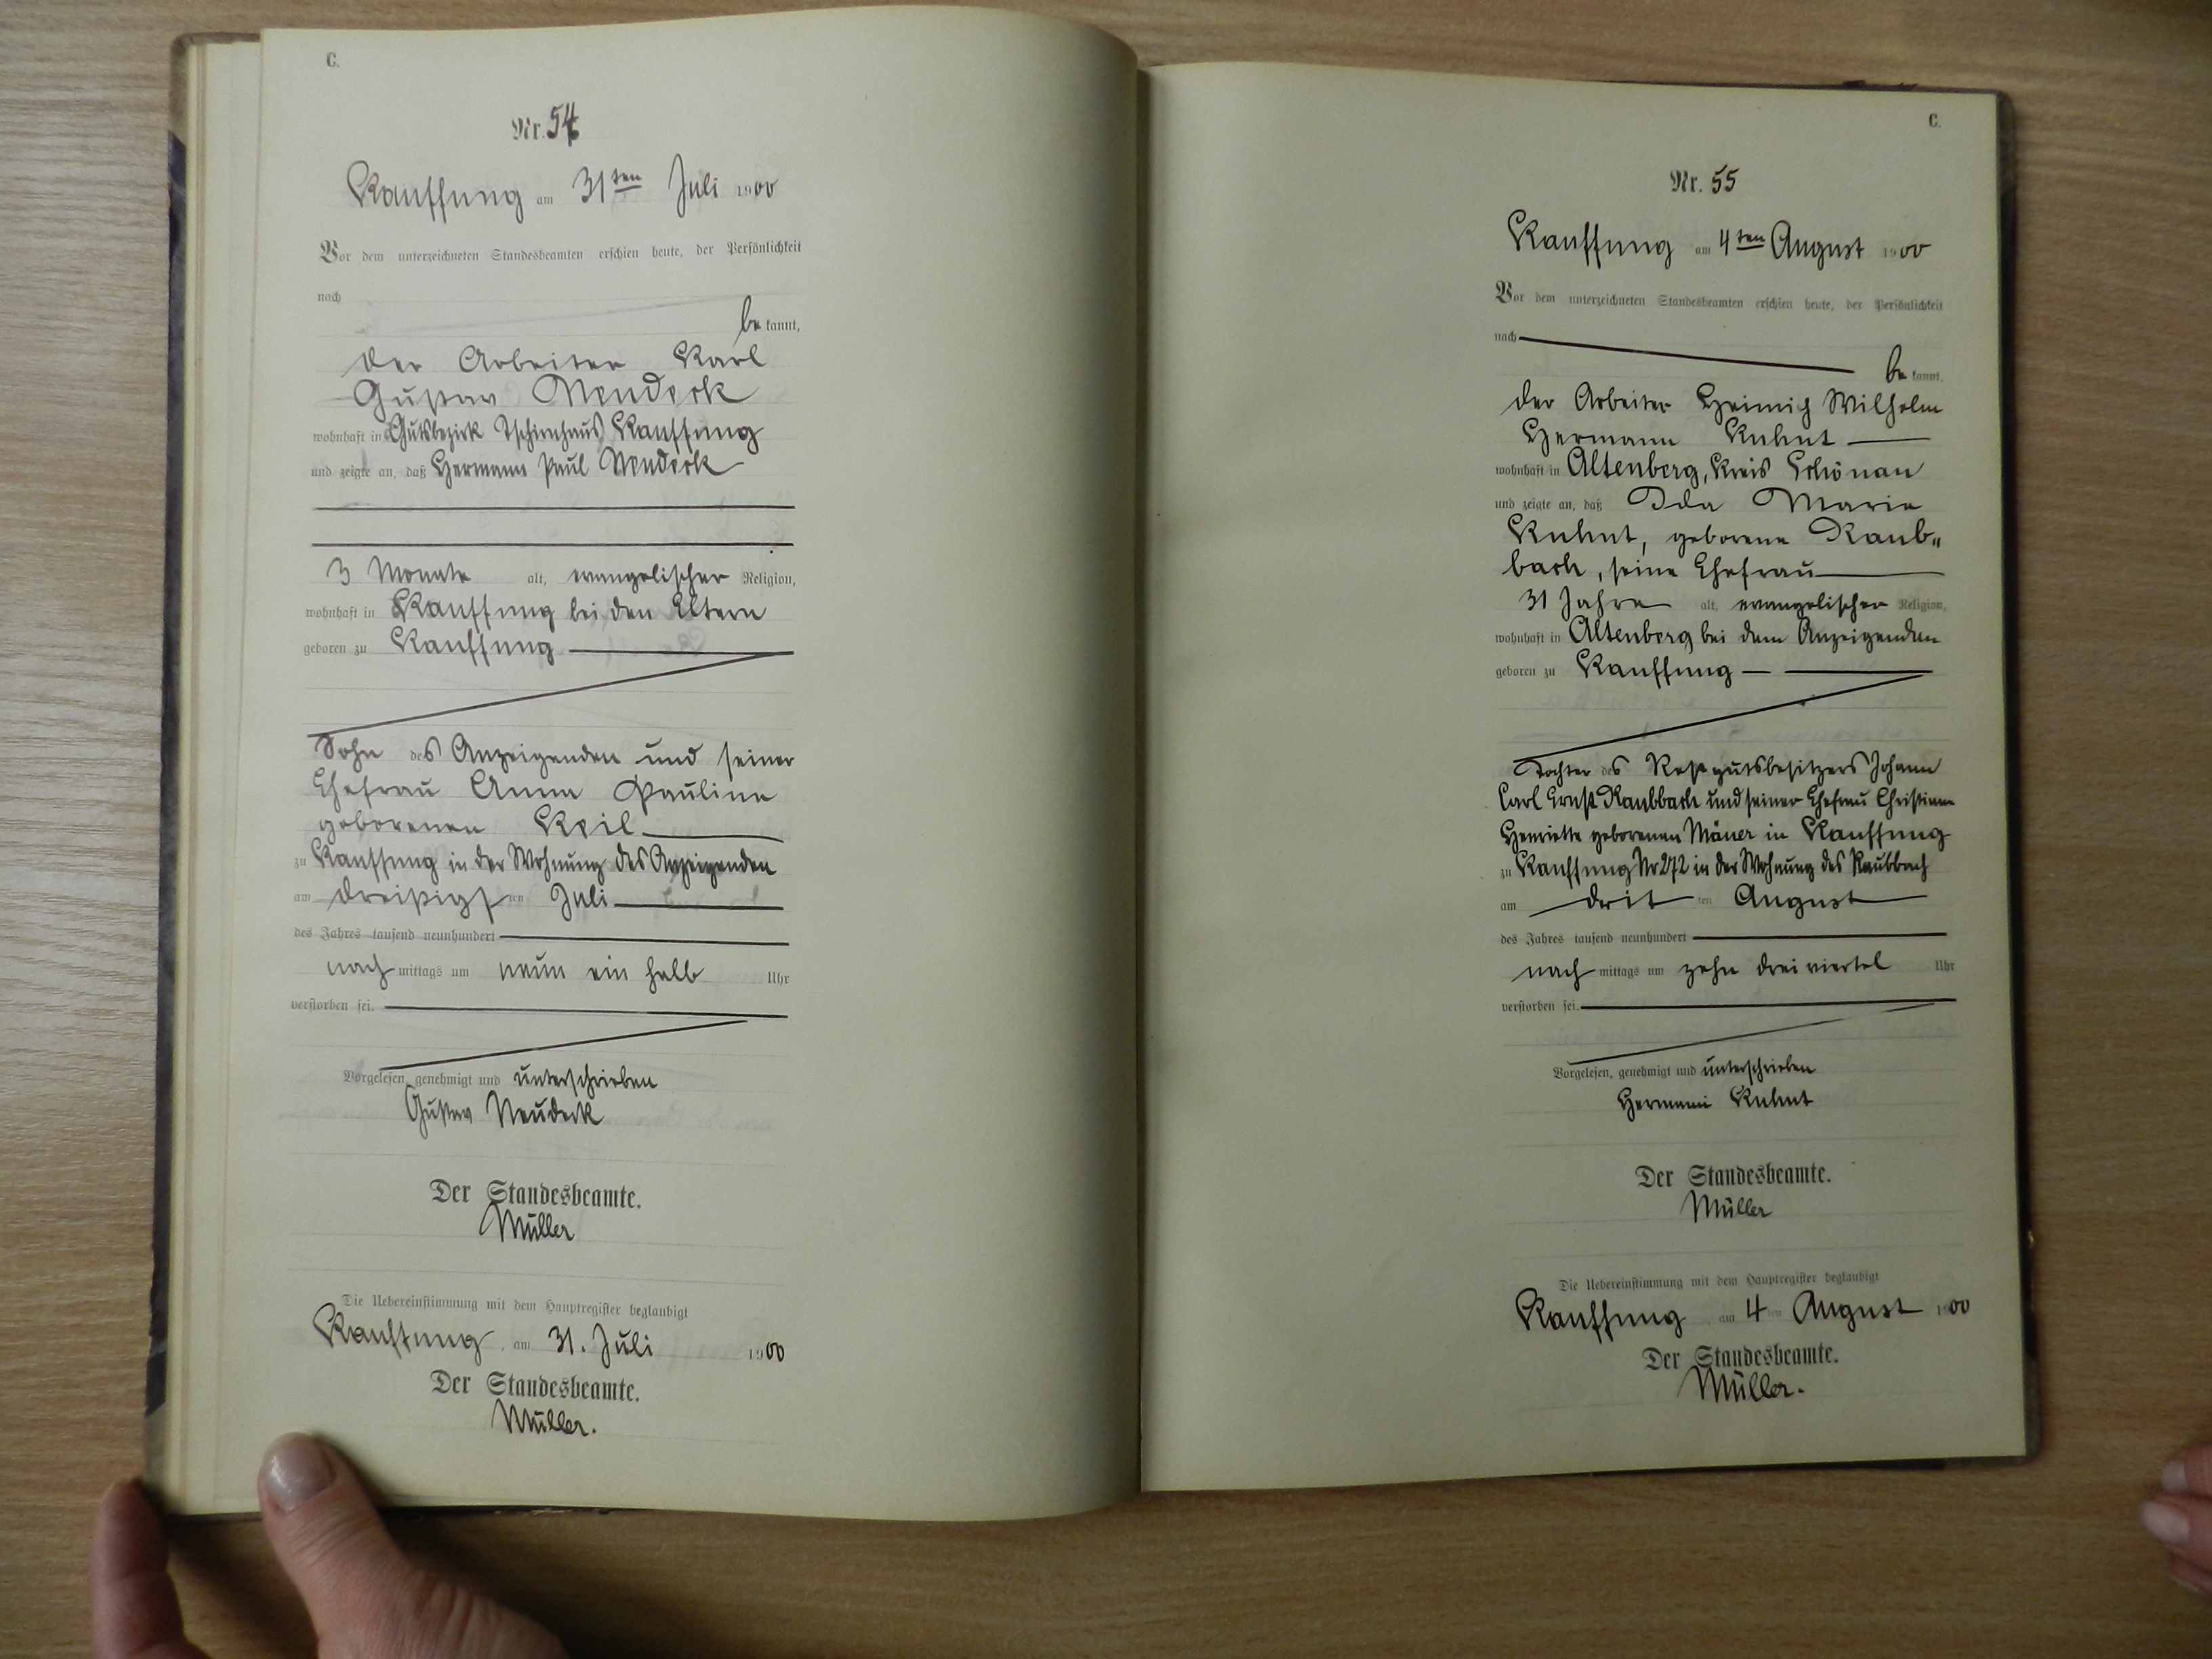 C.
Nr. 54
Kauffung am 31ten Juli 1900
Vor dem unterzeichneten Standesbeamten erschien heute, der Persönlichkeit
nach
bekannt,
der Arbeiter Karl
Gustav Neudeck
wohnhaft in Gutsbezirk Tschirnhaus Kauffung
und zeigte an, daß Hermann Paul Neudeck
3 Monate alt, evangelischer Religion,
wohnhaft in Kauffung bei den Eltern
geboren zu Kauffung
Sohn des Anzeigenden und seiner
Ehefrau Anna Pauline
geborenen Keil
zu Kauffung in der Wohnung des Anzeigenden
am dreißigsten Juli
des Jahres tausend neunhundert
nachmittags um neun ein halb Uhr
verstorben sei.
Vorgelesen, genehmigt und unterschrieben
Gustav Neudeck
Der Standesbeamte.
Müller
Die Uebereinstimmung mit dem Hauptregister beglaubigt
Kauffung am 31. Juli 1900
Der Standesbeamte.
Müller.
C.
Nr. 55
Kauffung am 4ten August 1900
Vor dem unterzeichneten Standesbeamten erschien heute, der Persönlichkeit
nach
bekannt,
der Arbeiter Heinrich Wilhelm
Hermann Kuhnt
wohnhaft in Altenberg, Kreis Schönau
und zeigte an, daß Ida Marie
Kuhnt, geborene Raub„
bach, seine Ehefrau
31 Jahre alt, evangelischer Religion,
wohnhaft in Altenberg bei dem Anzeigenden
geboren zu Kauffung
Tochter des Restgutsbesitzers Johann
Carl Ernst Raubbach und seiner Ehefrau Christiane
Henriette geborenen in Kauffung
zu Kauffung Nr 272 in der Wohnung des Raubbach
am dritten August
des Jahres tausend neunhundert
nachmittags um zehn dreiviertel Uhr
verstorben sei.
Vorgelesen, genehmigt und unterschrieben
Hermann Kuhnt
Der Standesbeamte.
Müller
Die Uebereinstimmung mit dem Hauptregister beglaubigt
Kauffung am 4ten August 1900
Der Standesbeamte.
Müller.